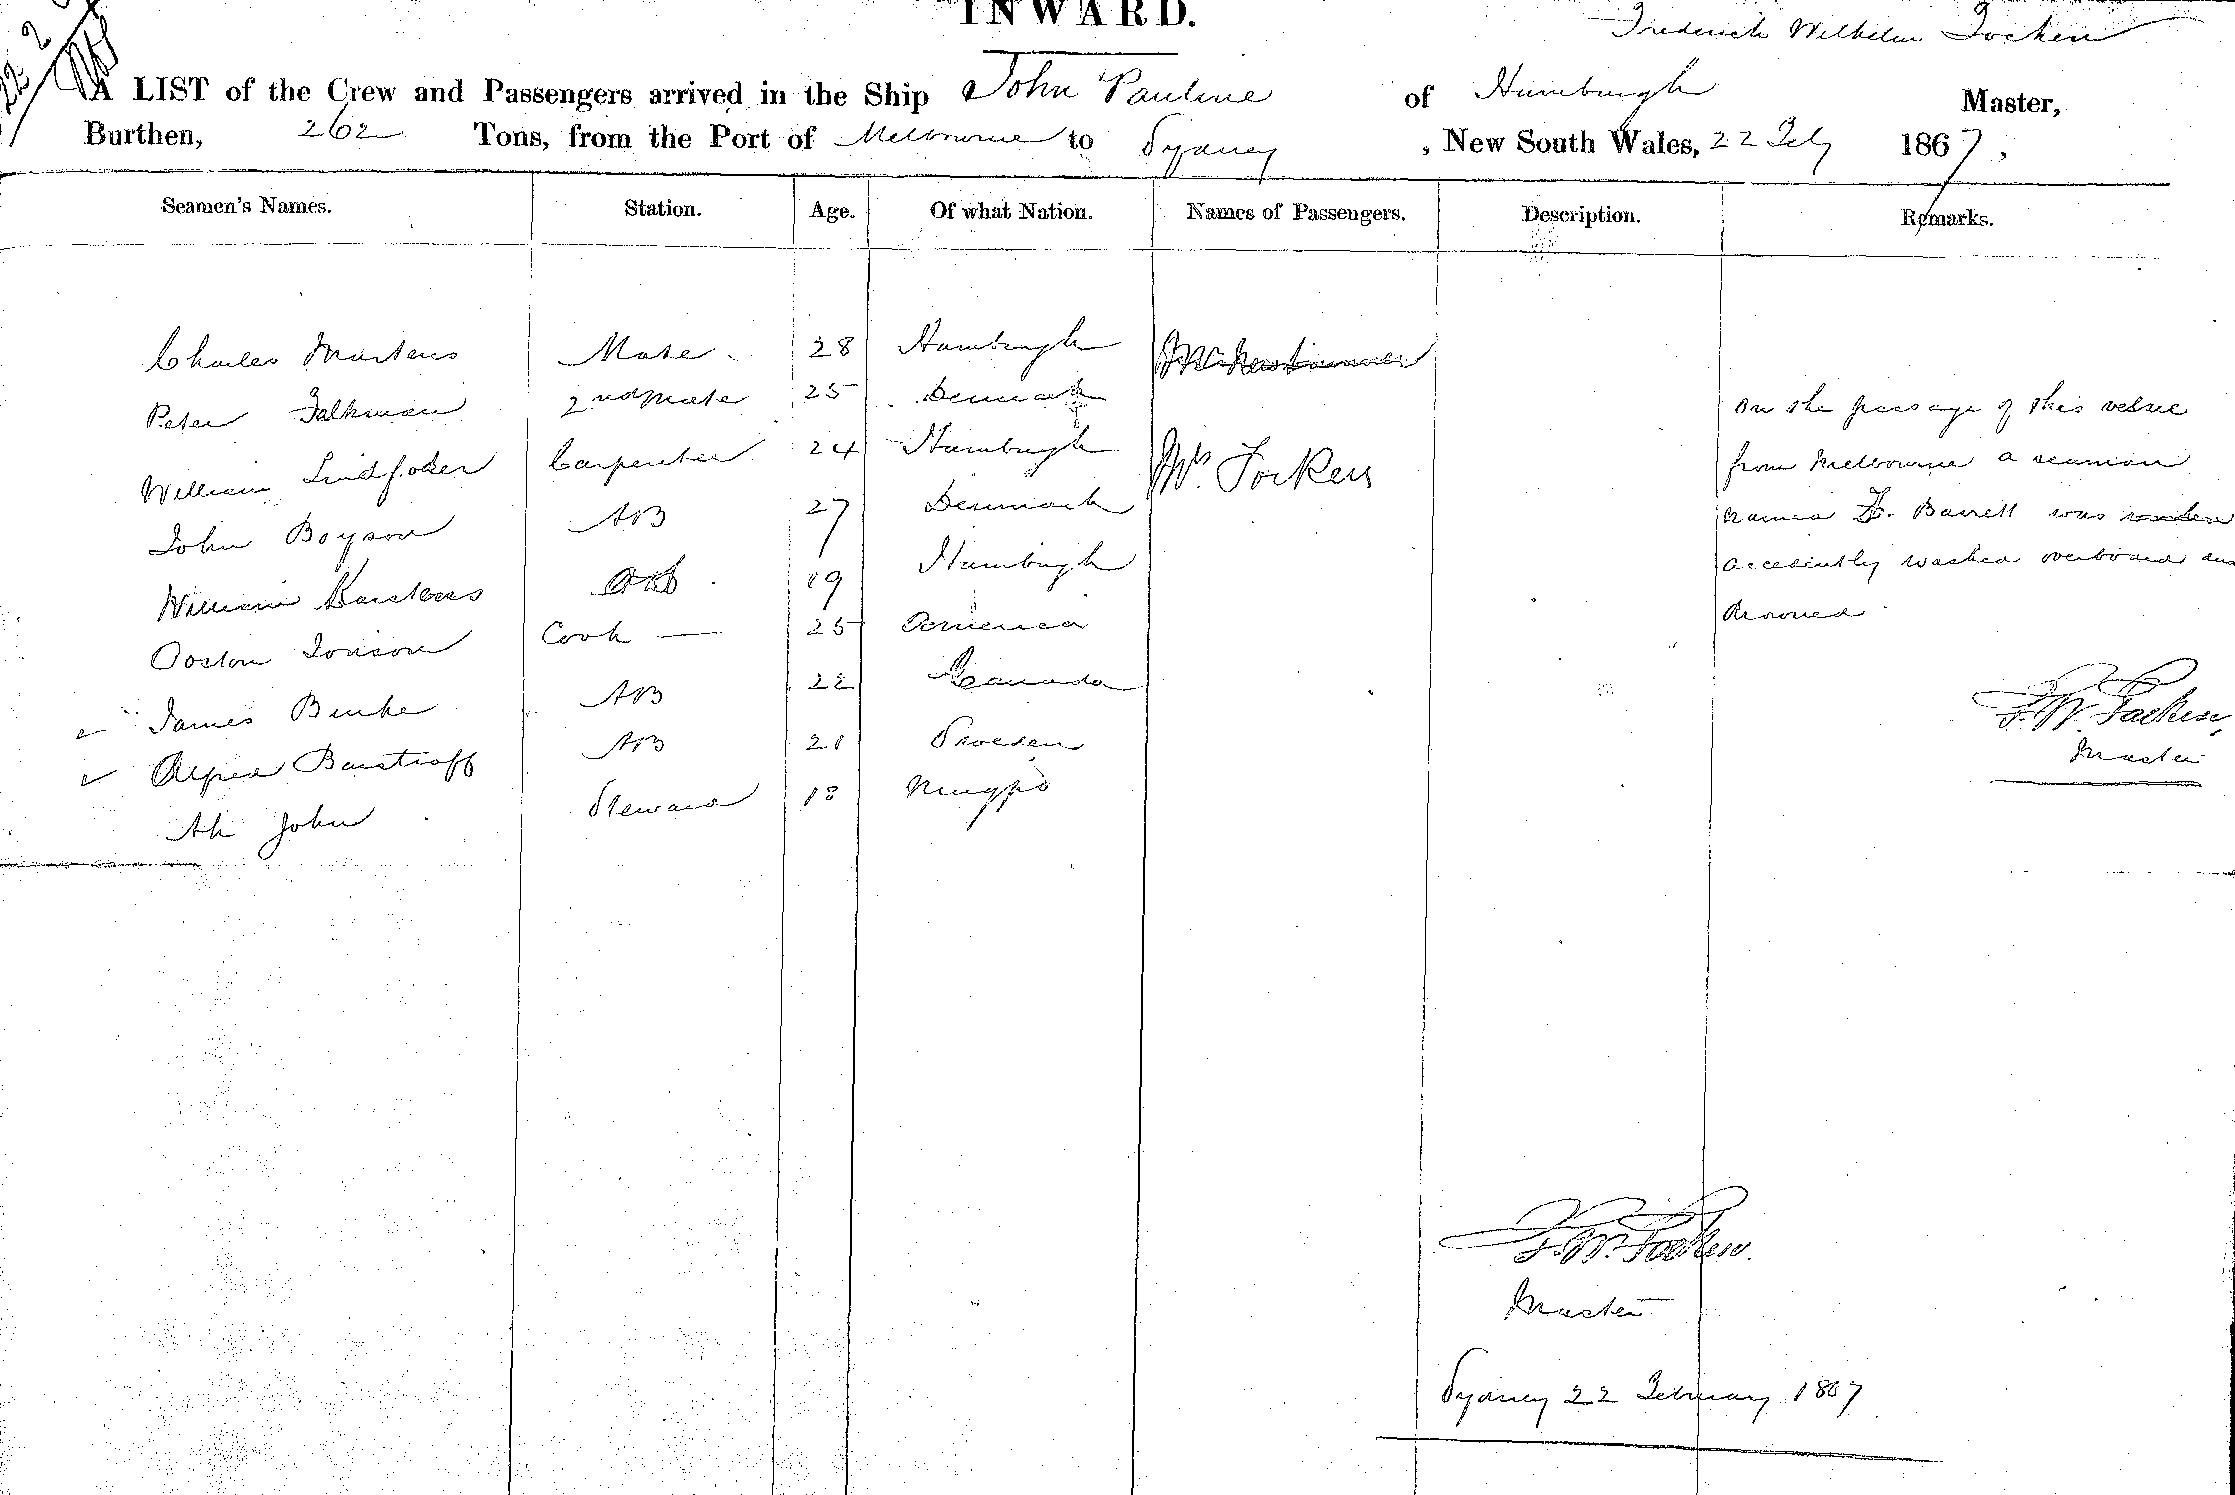 INWARD.
Frederick Wilhelm Focken
A LIST of the Crew and Passengers arrived in the Ship John Pauline of Humburgh Master,
Burthen, 262 Tons, from the Port of Melbourne to Sydney , New South Wales, 22 Feby 1867,
Seamen's Names. Station. Age. Of what Nation. Names of Passengers. Description. Remarks.
Charles Martens Mate 28 Humburgh
Peter Falkman 2nd Mate 25 Denmark
William Carpenter 24 Humburgh Mrs Focken
John Boyson AB 27 Denmark
William Karstens 19 Humburgh
Cook — 25 America
James Burke AB 22 Canada
Alfred AB 21 Sweden
Ah John Steward 18 Ningpo
On the passage of this vessel
from Melbourne a seaman
named Barrett was
accediently washed overboard
drowned
F. W. Focken,
Master
F. W. Focken.
Master
Sydney 22 February 1867